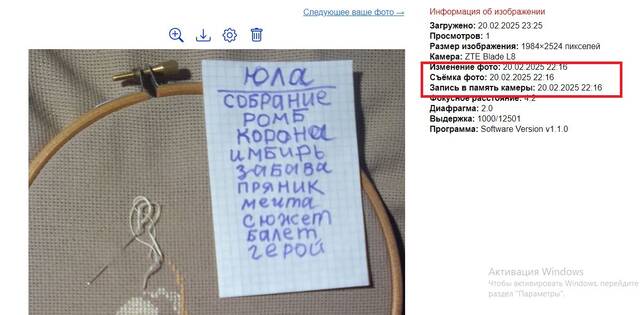 Следующее ваше фото →
Информация об изображении
Загружено: 20.02.2025 23:25
Просмотров: 1
Размер изображения: 1984×2524 пикселей
Камера: ZTE Blade L8
Изменение фото: 20.02.2025 22:16
Съёмка фото: 20.02.2025 22:16
Запись в память камеры: 20.02.2025 22:16
Фокусное расстояние: 4.2
Диафрагма: 2.0
Выдержка: 1000/12501
Программа: Software Version v1.1.0
ЮЛА
СОБРАНИЕ
РОМБ
КОРОНА
ИМБИРЬ
ЗАБАВА
ПРЯНИК
МЕЧТА
СЮЖЕТ
БАЛЕТ
ГЕРОЙ
Активация Windows
Чтобы активировать Windows, перейдите
раздел "Параметры".